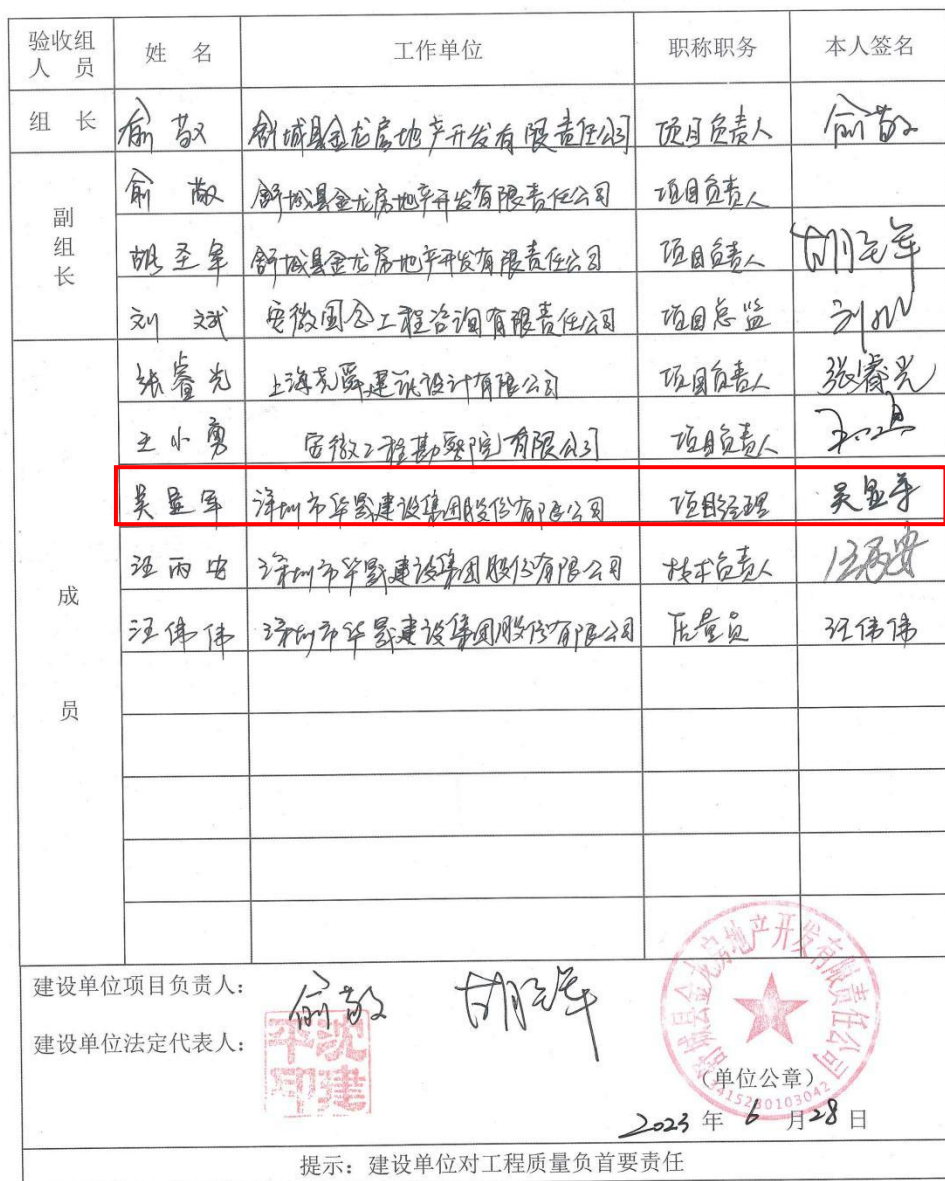 验收组人员 姓 名 工作单位 职称职务 本人签名
组 长 俞敬 舒城县金龙房地产开发有限责任公司 项目负责人 俞敬
副组长 俞敬 舒城县金龙房地产开发有限责任公司 项目负责人
胡圣军 舒城县金龙房地产开发有限责任公司 项目负责人 胡圣军
刘斌 安徽国合工程咨询有限责任公司 项目总监 刘斌
成员 张睿光 上海尧舜建筑设计有限公司 项目负责人 张睿光
王小勇 安徽工程勘察院有限公司 项目负责人
吴显军 深圳市华晟建设集团股份有限公司 项目经理 吴显军
汪丙安 深圳市华晟建设集团股份有限公司 技术负责人 汪丙安
汪伟伟 深圳市华晟建设集团股份有限公司 质量员 汪伟伟
建设单位项目负责人: 俞敬 胡圣军
建设单位法定代表人: 沈建平印
舒城县金龙房地产开发有限责任公司
(单位公章)
2023 年 6 月 28 日
提示: 建设单位对工程质量负首要责任